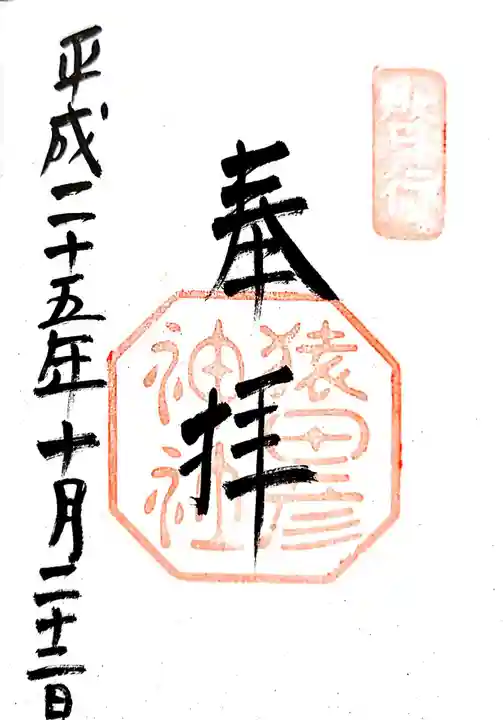 奉拝
猿田彦
神社
平成二十五年十月二十二日